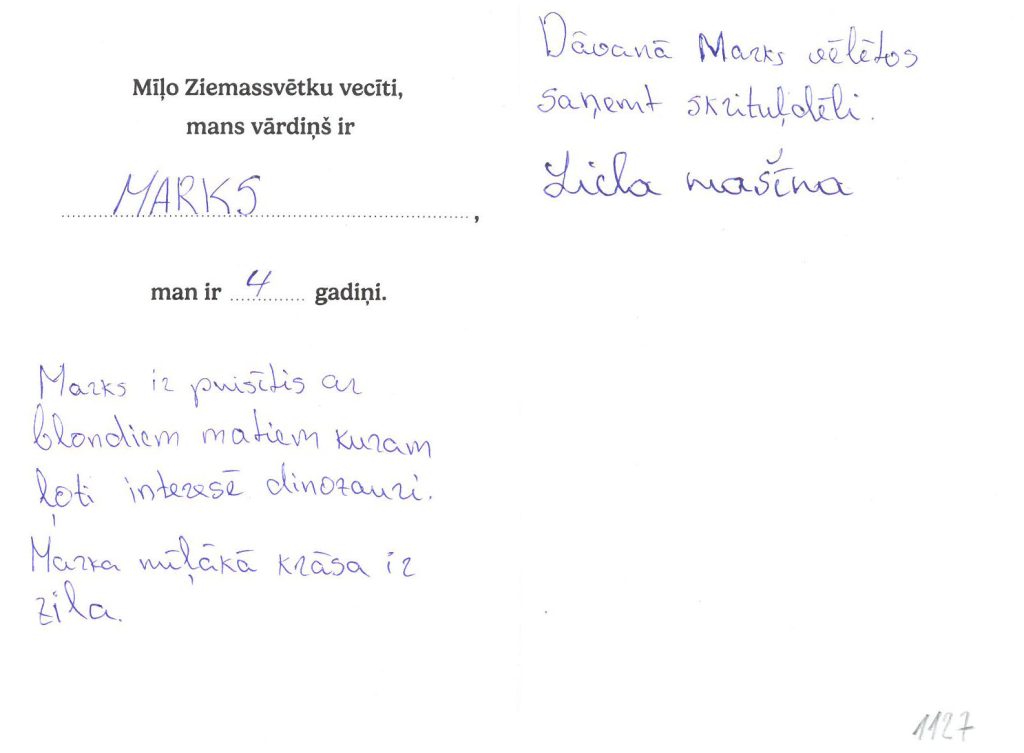 Mīļo Ziemassvētku vecīti,
mans vārdiņš ir
MARKS,
man ir 4 gadiņi.
Marks ir puisītis ar
blondiem matiem kuram
ļoti interesē dinozauri.
Marka mīļākā krāsa ir
zila.
Dāvanā Marks vēlētos
saņemt skrituļdēli.
Liela mašīna
1127